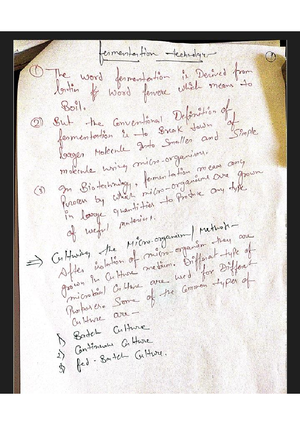 fermentation technology
① The word fermentation is Derived from
latin word fervere which means to
Boil.
② But the Conventional Definition of
fermentation is to Break down of
Larger Molecule into Smaller and Simple
molecule using micro-organism.
③ In Biotechnology, fermentation means any
Process by which micro-organism are grown
in large quantities to Produce any type
of useful materials.
⇒ Culturing the Micro-organism / Method :-
After isolation of micro-organism they are
grown in Culture medium. Different type of
microbial Culture are used for Different
Some of the Common types of
Culture are -
1) Batch Culture
2) Continuous Culture
3) fed - Batch Culture.